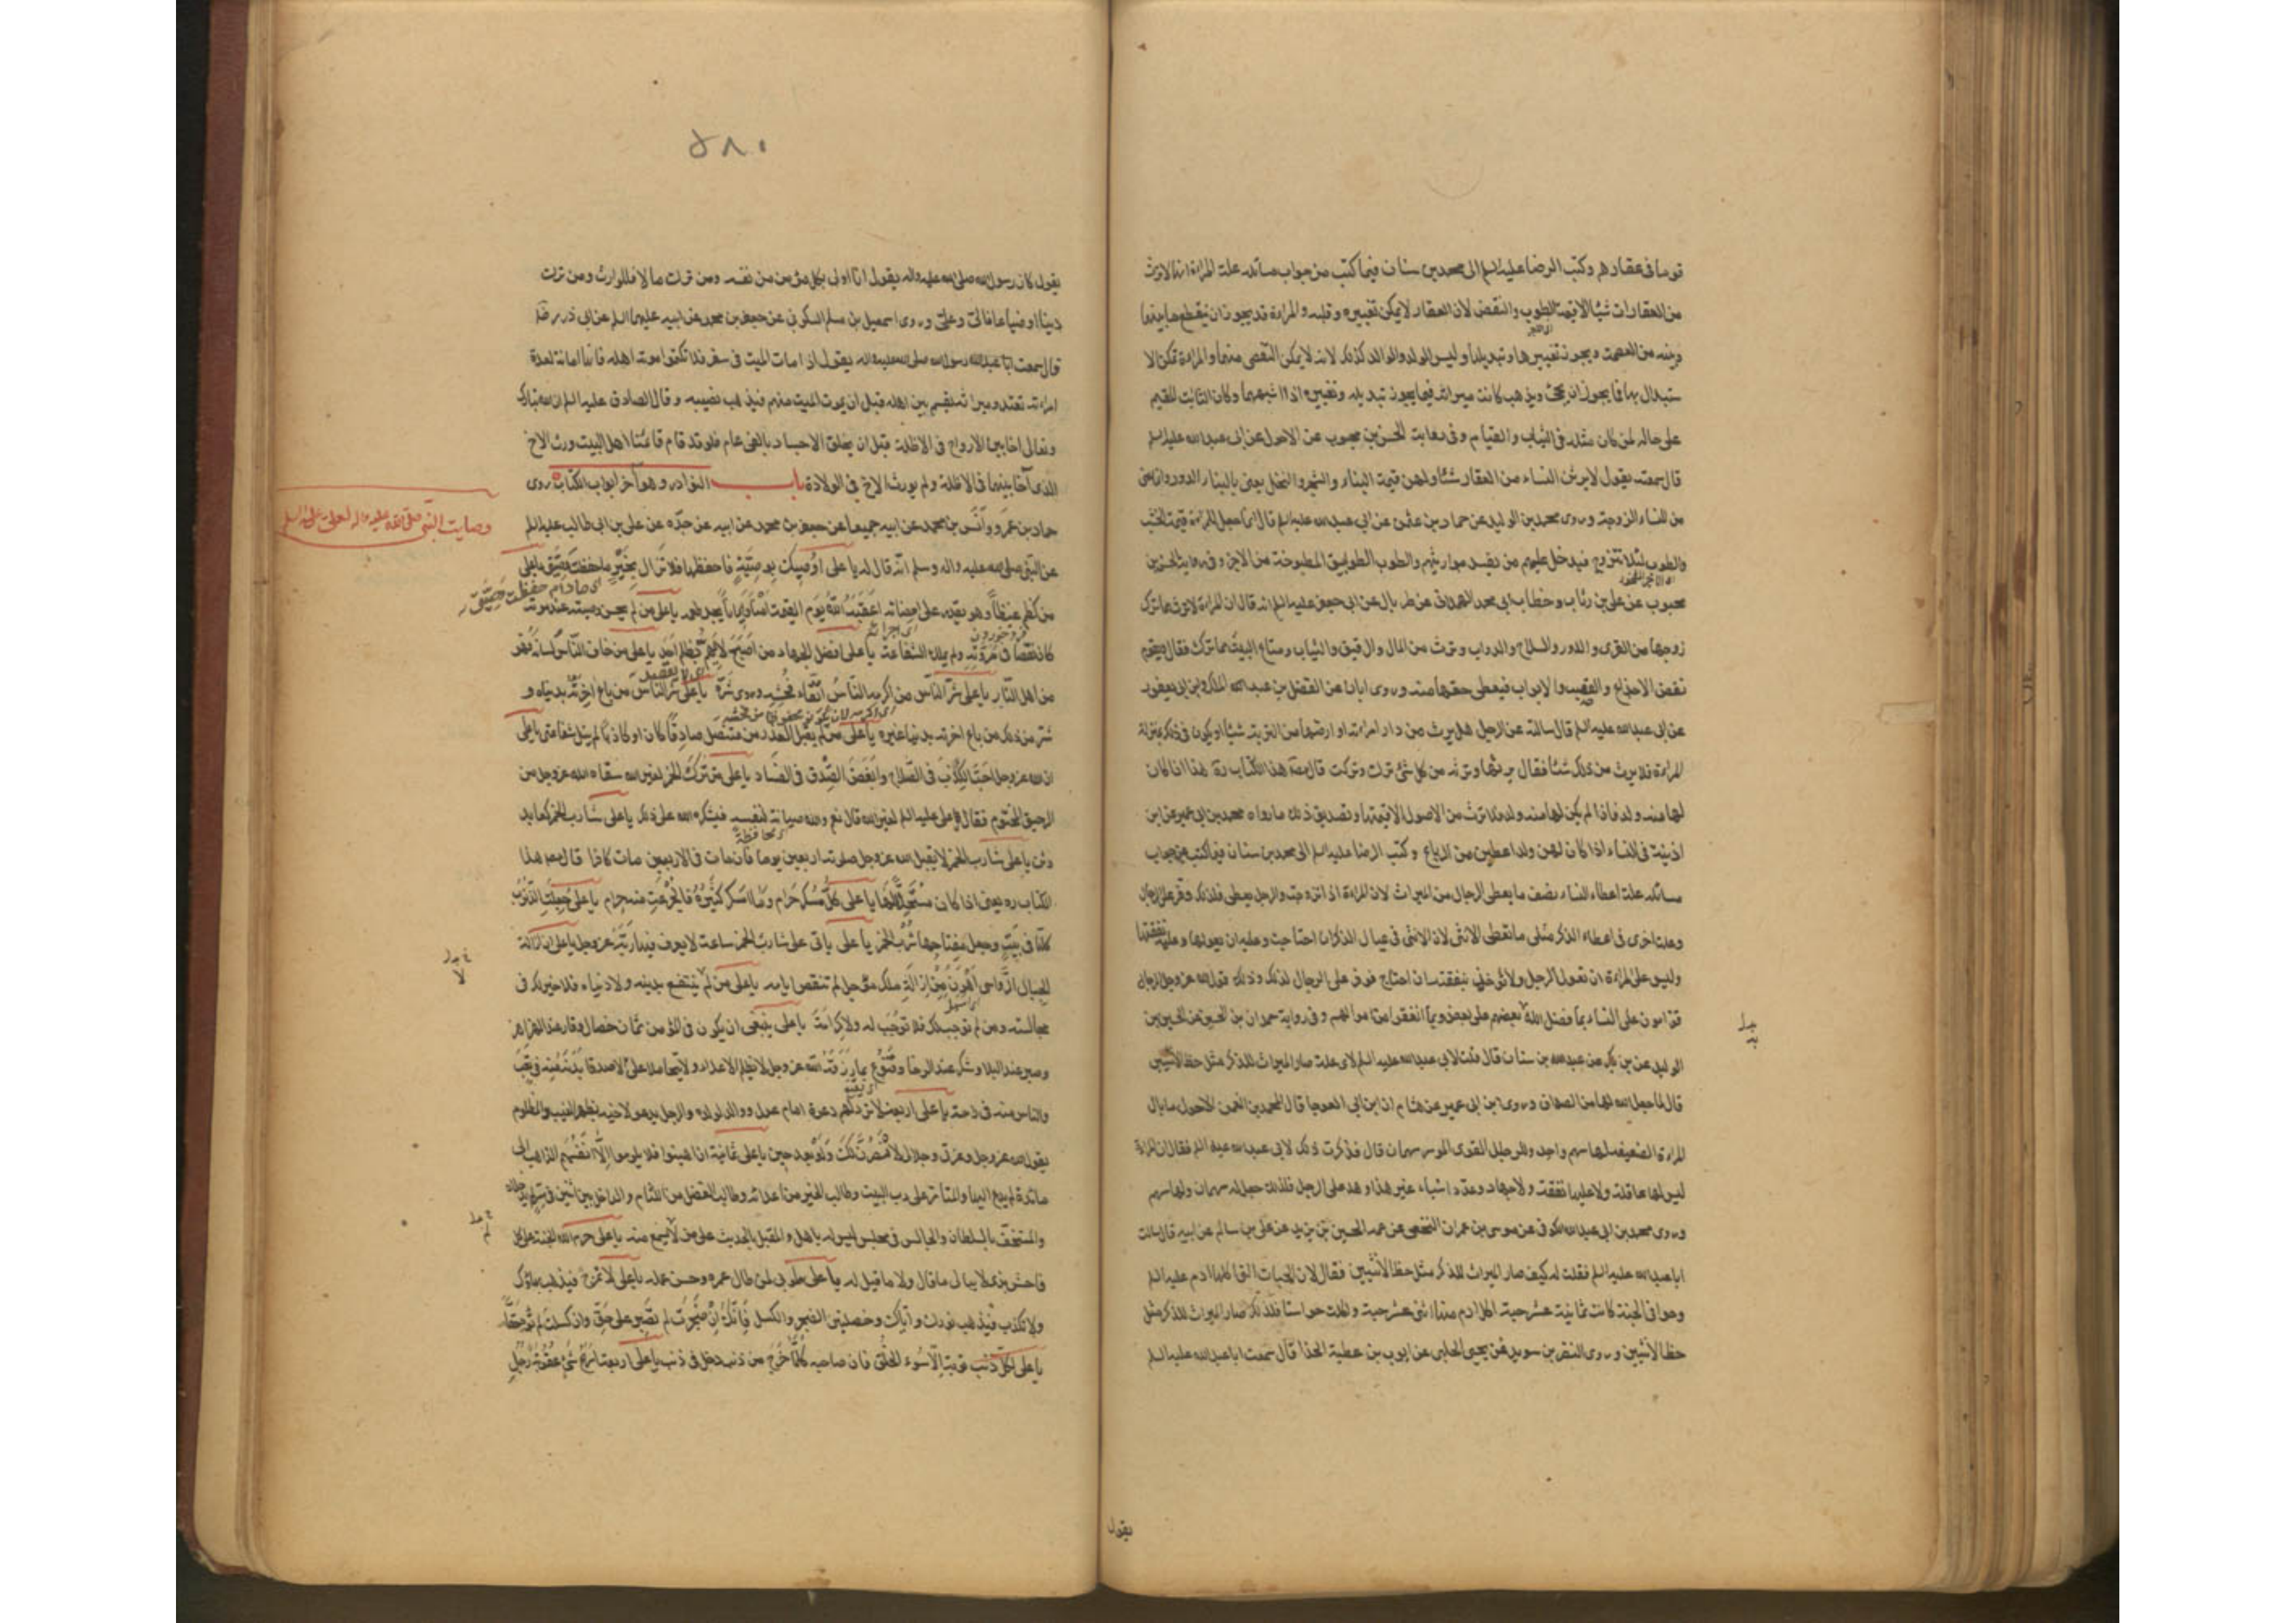 قوما فى عقارهم وكتب الرضا عليه السلم الى محمد بن سنان فيما كتب من جواب مسائله علة المراة انها لا ترث
من العقارات شيئا الا قيمة الطوب والنقض لان العقار لا يمكن تغييره وقلبه والمراة قد يجوز ان ينقطع ما بينها
وبينه من العصمة ويجوز تغييرها وتبديلها وليس الولد والوالد كذلك لانه لا يمكن التفصى منهما والمراة يمكن الا
ستبدال بها فما يجوز ان يجئ ويذهب كانت ميراثه فيما يجوز تبديله وتغييره اذا اشبههما وكان الثابت المقيم
على حاله لمن كان مثله فى الثبات والقيام وفى رواية الحسن بن محبوب عن الاحول عن ابى عبد الله عليه السلم
قال سمعته يقول لا يرثن النساء من العقار شيئا ولهن قيمة البناء والشجر والنخل يعنى بالبناء الدور وانما عنى
من النساء الزوجة وروى محمد بن الوليد عن حماد بن عثمن عن ابى عبد الله عليه السلم قال انما جعل للمراة قيمة الخشب
والطوب لئلا تتزوج فيدخل عليهم من يفسد مواريثهم والطوب الطوابيق المطبوخة من الاجر وفى رواية الحسن بن
محبوب عن على بن رئاب وخطاب ابى محمد الهمدانى عن طربال عن ابى جعفر عليه السلم انه قال ان المراة لا ترث مما ترك
زوجها من القرى والدور والسلاح والدواب وترث من المال والرقيق والثياب ومتاع البيت مما ترك فقال ويقوم
نقض الاجذاع والقصب والابواب فيعطى حقها منه وروى ابان عن الفضل بن عبد الملك وابن ابى يعفور
عن ابى عبد الله عليه السلم قال سالته عن الرجل هل يرث من دار امراته او ارضها من التربة شيئا او يكون فى ذلك بمنزلة
المراة فلا يرث من ذلك شيئا فقال يرثها وترثه من كل شئ ترك وتركت قال مصنف هذا الكتاب ره هذا اذا كان
لها منه ولد فاذا لم يكن لها منه ولد فلا ترث من الاصول الا قيمتها وتصديق ذلك ما رواه محمد بن ابى عمير عن ابن
اذينة فى النساء اذا كان لهن ولد اعطين من الرباع وكتب الرضا عليه السلم الى محمد بن سنان فيما كتب من جواب
مسائله علة اعطاء النساء نصف ما يعطى الرجال من الميراث لان المراة اذا تزوجت والرجل يعطى فلذلك وفر على الرجال
وعلة اخرى فى اعطاء الذكر مثلى ما تعطى الانثى لان الانثى فى عيال الذكر ان احتاجت وعليه ان يعولها وعليه نفقتها
وليس على المراة ان تعول الرجل ولا تؤخذ بنفقته ان احتاج فوفر على الرجال لذلك وذلك قول الله عز وجل الرجال
قوامون على النساء بما فضل الله بعضهم على بعض وبما انفقوا من اموالهم وفى رواية حمدان بن الحسين عن الحسين بن
الوليد عن بن بكير عن عبد الله بن سنان قال قلت لابى عبد الله عليه السلم لاى علة صار الميراث للذكر مثل حظ الانثيين
قال لما جعل الله لها من الصداق وروى ابن ابى عمير عن هشام ان ابن ابى العوجا قال لمحمد بن النعمن الاحول ما بال
المراة الضعيفة لها سهم واحد وللرجل القوى الموسر سهمان قال فذكرت ذلك لابى عبد الله عليه السلم فقال ان المراة
ليس لها عاقلة ولا عليها نفقة ولا جهاد وعدد اشياء غير هذا وهذا على الرجل فلذلك جعل له سهمان ولها سهم
وروى محمد بن ابى عبد الله الكوفى عن موسى بن عمران النخعى عن عمه الحسين بن يزيد عن على بن سالم عن ابيه قال سالت
ابا عبد الله عليه السلم فقلت له كيف صار الميراث للذكر مثل حظ الانثيين فقال لان الحبات التى اكلها ادم عليه السلم
وحوا فى الجنة كانت ثمانية عشر حبة اكل ادم منها اثنى عشر حبة واكلت حوا ستا فلذلك صار الميراث للذكر مثل
حظ الانثيين وروى النضر بن سويد عن يحيى الحلبى عن ايوب بن عطية الحذا قال سمعت ابا عبد الله عليه السلم
يقول
٥٨٠
يقول كان رسول الله صلى الله عليه واله يقول انا اولى بكل مؤمن من نفسه ومن ترك مالا فللوارث ومن ترك
دينا او ضياعا فالى وعلى وروى اسمعيل بن مسلم السكونى عن جعفر بن محمد عن ابيه عليهما السلم عن ابى ذر رضه
قال سمعت رسول الله صلى الله عليه واله يقول اذا مات الميت فى سفر فلا تكتموا موته اهله فانها امانة لعدة
امراته تعتد وميراثه يقسم بين اهله قبل ان يموت الميت منهم فيذهب نصيبه وقال الصادق عليه السلم ان الله تبارك
وتعالى اخا بين الارواح فى الاظلة قبل ان يخلق الاجساد بالفى عام فلو قد قام قائمنا اهل البيت ورث الاخ
الذى آخا بينهما فى الاظلة ولم يورث الاخ فى الولادة باب النوادر وهو آخر ابواب الكتاب روى
وصايت النبى صلى الله عليه واله لعلى عليه السلم
حماد بن عمرو وانس بن محمد عن ابيه جميعا عن جعفر بن محمد عن ابيه عن جده عن على بن ابى طالب عليه السلم
عن النبى صلى الله عليه واله وسلم انه قال له يا على اوصيك بوصية فاحفظها فلا تزال بخير ما حفظت وصيتى يا على
اى مادام حفظت وصيتى
من كظم غيظا وهو يقدر على امضائه اعقبه الله يوم القيمة امنا وايمانا يجد طعمه يا على من لم يحسن وصيته عند موته
كان نقصا فى مروته ولم يملك الشفاعة يا على افضل الجهاد من اصبح لا يهم بظلم احد يا على من خاف الناس لسانه فهو
من اهل النار يا على شر الناس من اكرمه الناس اتقاء فحشه وروى شره يا على شر الناس من باع اخرته بدنياه و
شر من ذلك من باع اخرته بدنيا غيره يا على من لم يقبل العذر من متنصل صادقا كان او كاذبا لم ينل شفاعتى يا على
ان الله عز وجل احب الكذب فى الصلاح وابغض الصدق فى الفساد يا على من ترك الخمر لغير الله سقاه الله عز وجل من
الرحيق المختوم فقال على عليه السلم لغير الله قال نعم والله صيانة لنفسه فيشكره الله على ذلك يا على شارب الخمر كعابد
محافظة
وثن يا على شارب الخمر لا يقبل الله عز وجل صلوته اربعين يوما فان مات فى الاربعين مات كافرا قال مصنف هذا
الكتاب ره يعنى اذا كان مستحلا لها يا على كل مسكر حرام وما اسكر كثيره فالجرعة منه حرام يا على جعلت الذنوب
كلها فى بيت وجعل مفتاحها شرب الخمر يا على ياتى على شارب الخمر ساعة لا يعرف فيها ربه عز وجل يا على ان ازالة
الجبال الرواسى اهون من ازالة ملك مؤجل لم تنقص ايامه يا على من لم ينتفع بدينه ولا دنياه فلا خير لك فى
مجالسته ومن لم يوجب لك فلا توجب له ولا كرامة يا على ينبغى ان يكون فى المؤمن ثمان خصال وقار عند الهزاهز
وصبر عند البلا وشكر عند الرخا وقنوع بما رزقه الله عز وجل لا يظلم الاعداء ولا يتحامل على الاصدقا بدنه منه فى تعب
والناس منه فى راحة يا على اربعة لا ترد لهم دعوة امام عدل ووالد لولده والرجل يدعو لاخيه بظهر الغيب والمظلوم
يقول الله عز وجل وعزتى وجلالى لانتصرن لك ولو بعد حين يا على ثمانية ان اهينوا فلا يلوموا الا انفسهم الذاهب الى
مائدة لم يدع اليها والمتامر على رب البيت وطالب الخير من اعدائه وطالب الفضل من اللئام والداخل بين اثنين فى سر لم يدخلاه
والمستخف بالسلطان والجالس فى مجلس ليس له باهل والمقبل بالحديث على من لا يسمع منه يا على حرم الله الجنة على كل
فاحش بذى لا يبالى ما قال ولا ما قيل له يا على طوبى لمن طال عمره وحسن عمله يا على لا تمزح فيذهب بهاؤك
ولا تكذب فيذهب نورك واياك وخصلتين الضجر والكسل فانك ان ضجرت لم تصبر على حق وان كسلت لم تؤد حقا
يا على لكل ذنب توبة الا سوء الخلق فان صاحبه كلما خرج من ذنب دخل فى ذنب يا على اربعة اسرع شئ عقوبة رجل